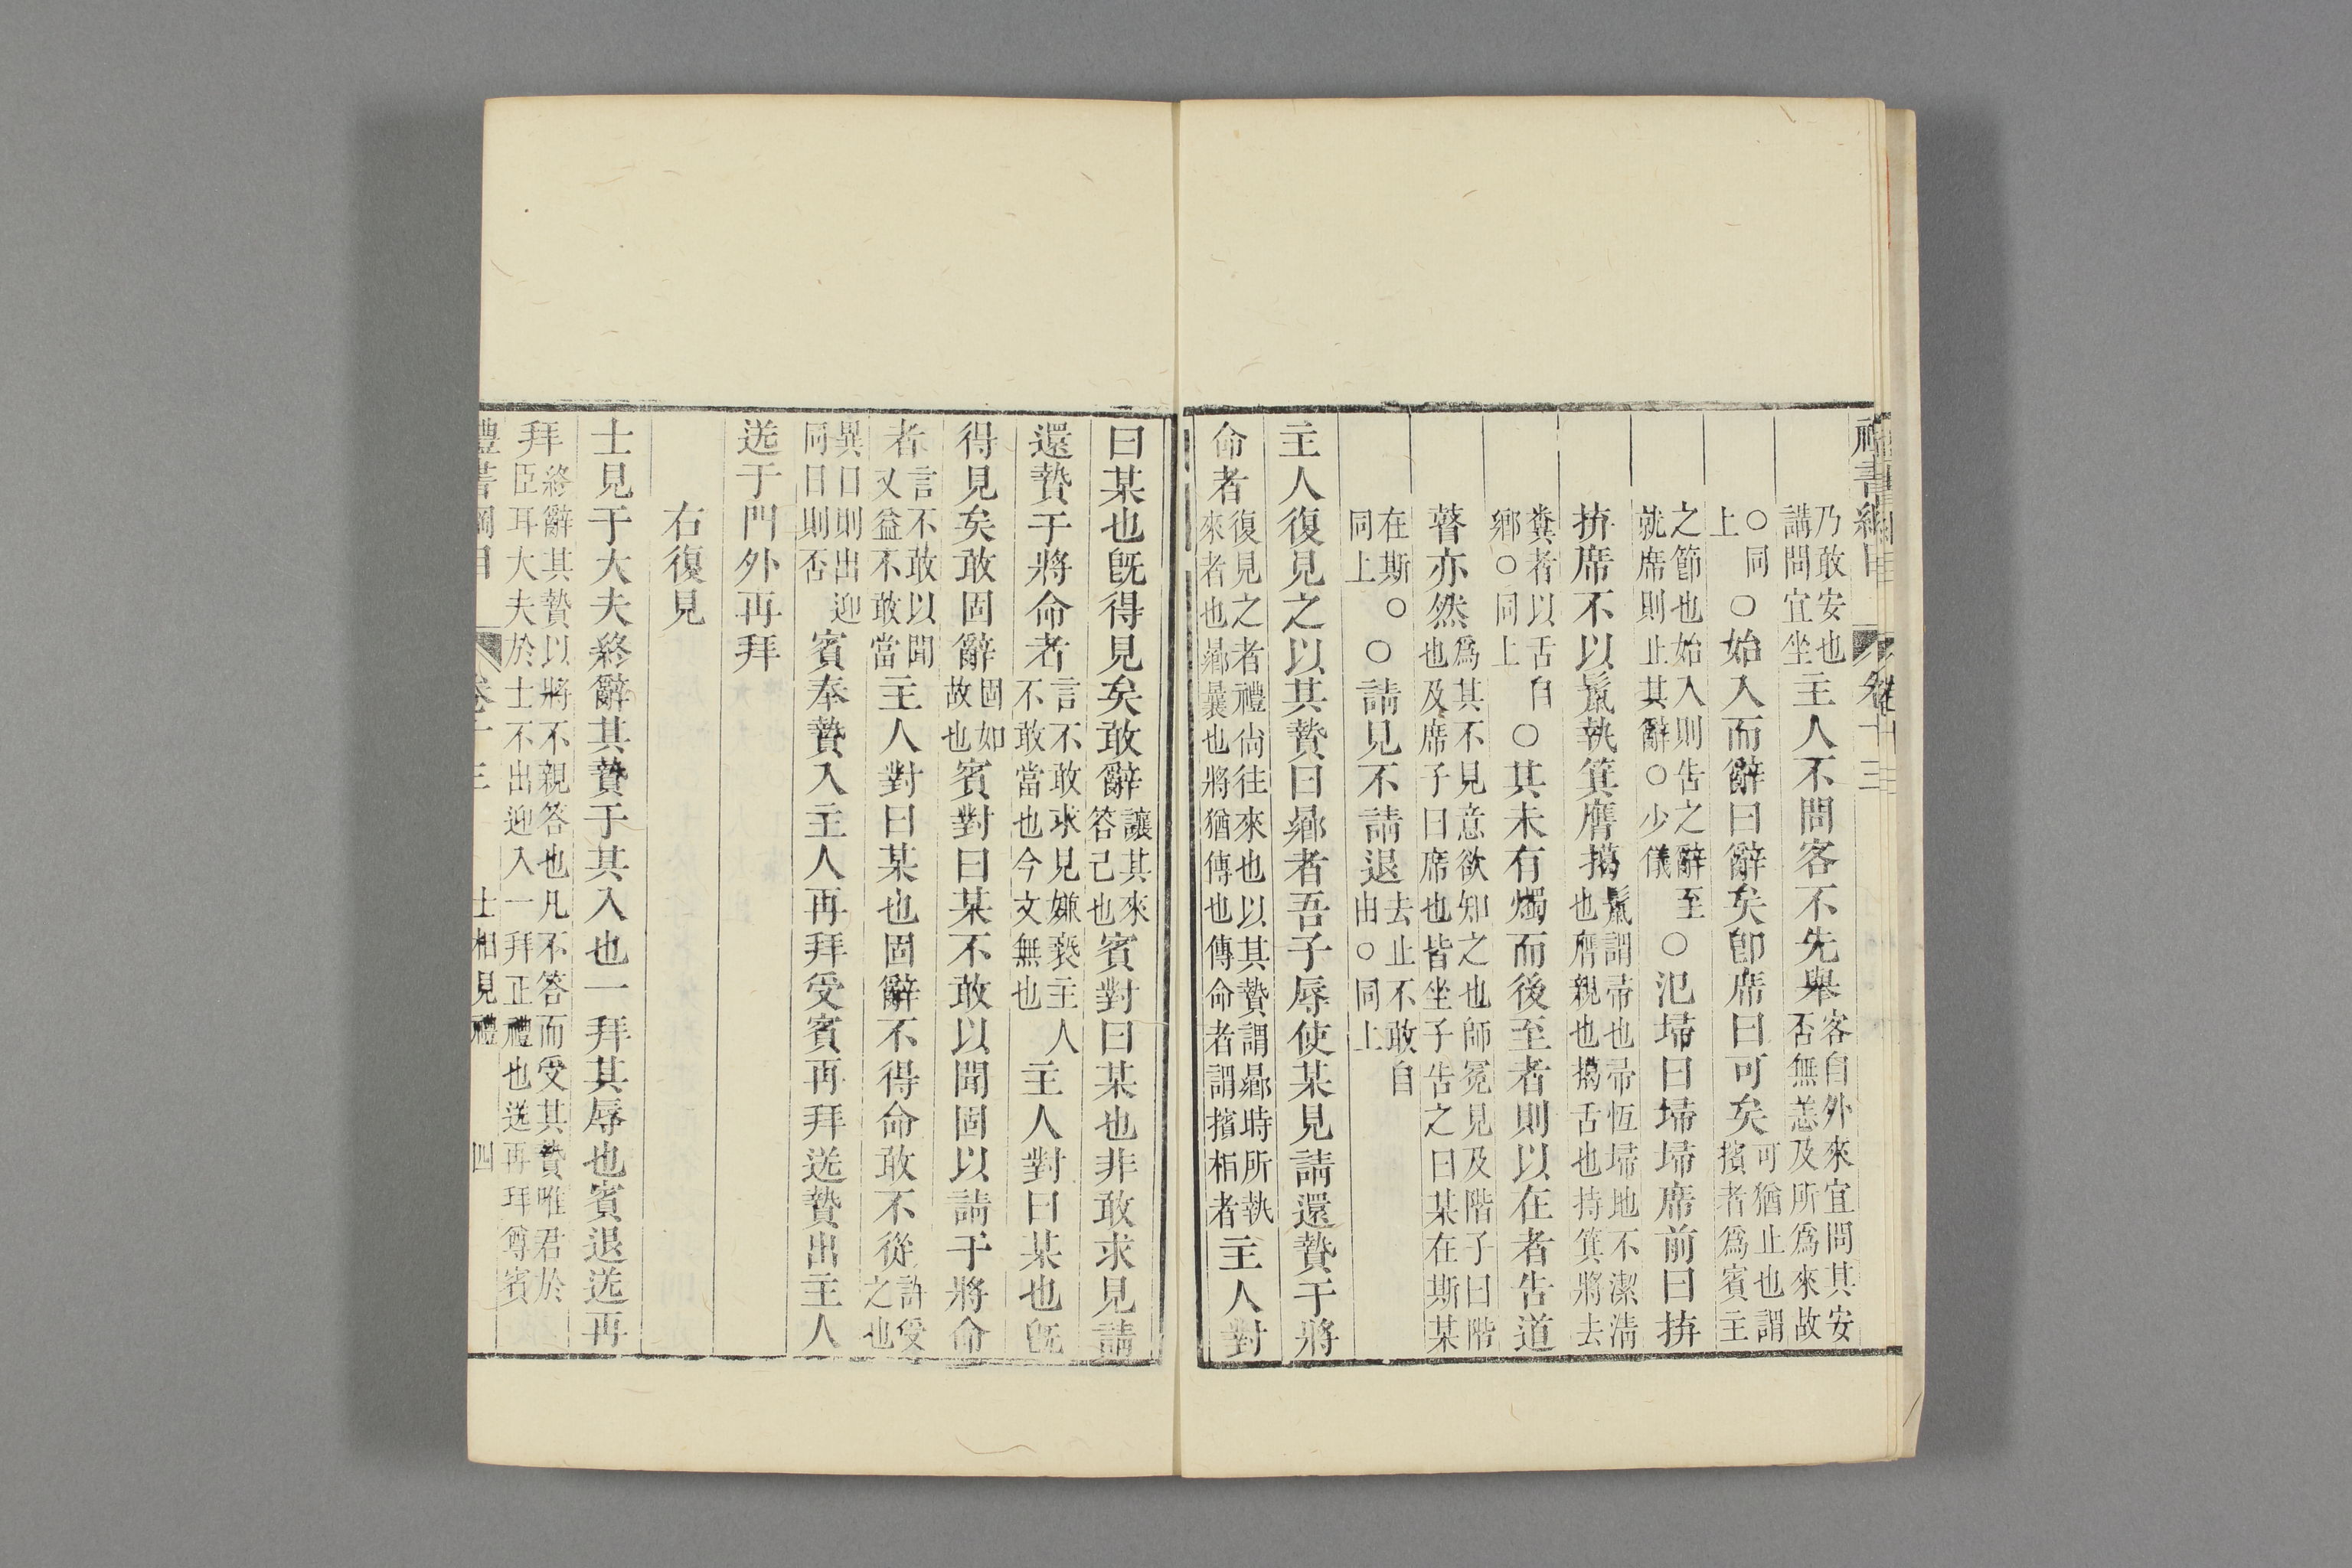 禮書綱目 卷十三
乃敢安也講問宜坐主人不問客不先舉客自外來宜問其安否無恙及所爲來故
○同上○始入而辭曰辭矣卽席曰可矣可猶止也謂擯者爲賓主
之節也始入則告之辭至就席則止其辭○少儀○氾埽曰埽埽席前曰拚
拚席不以鬛執箕膺擖鬛謂帚也帚恆埽地不潔清也膺親也擖舌也持箕將去
糞者以舌自鄉○同上○其未有燭而後至者則以在者告道
瞽亦然爲其不見意欲知之也師冕見及階子曰階也及席子曰席也皆坐子告之曰某在斯某
在斯○同上○請見不請退去止不敢自由○同上
主人復見之以其贄曰曏者吾子辱使某見請還贄于將
命者復見之者禮尙往來也以其贄謂曏時所執來者也曏曩也將猶傳也傳命者謂擯相者主人對
曰某也旣得見矣敢辭讓其來答己也賓對曰某也非敢求見請
還贄于將命者言不敢求見嫌褻主人不敢當也今文無也主人對曰某也旣
得見矣敢固辭固如故也賓對曰某不敢以聞固以請于將命
者言不敢以聞又益不敢當主人對曰某也固辭不得命敢不從許受之也
異日則出迎同日則否賓奉贄入主人再拜受賓再拜送贄出主人
送于門外再拜
右復見
士見于大夫終辭其贄于其入也一拜其辱也賓退送再
拜終辭其贄以將不親答也凡不答而受其贄唯君於臣耳大夫於士不出迎入一拜正禮也送再拜尊賓
禮書綱目 卷十三 士相見禮 四